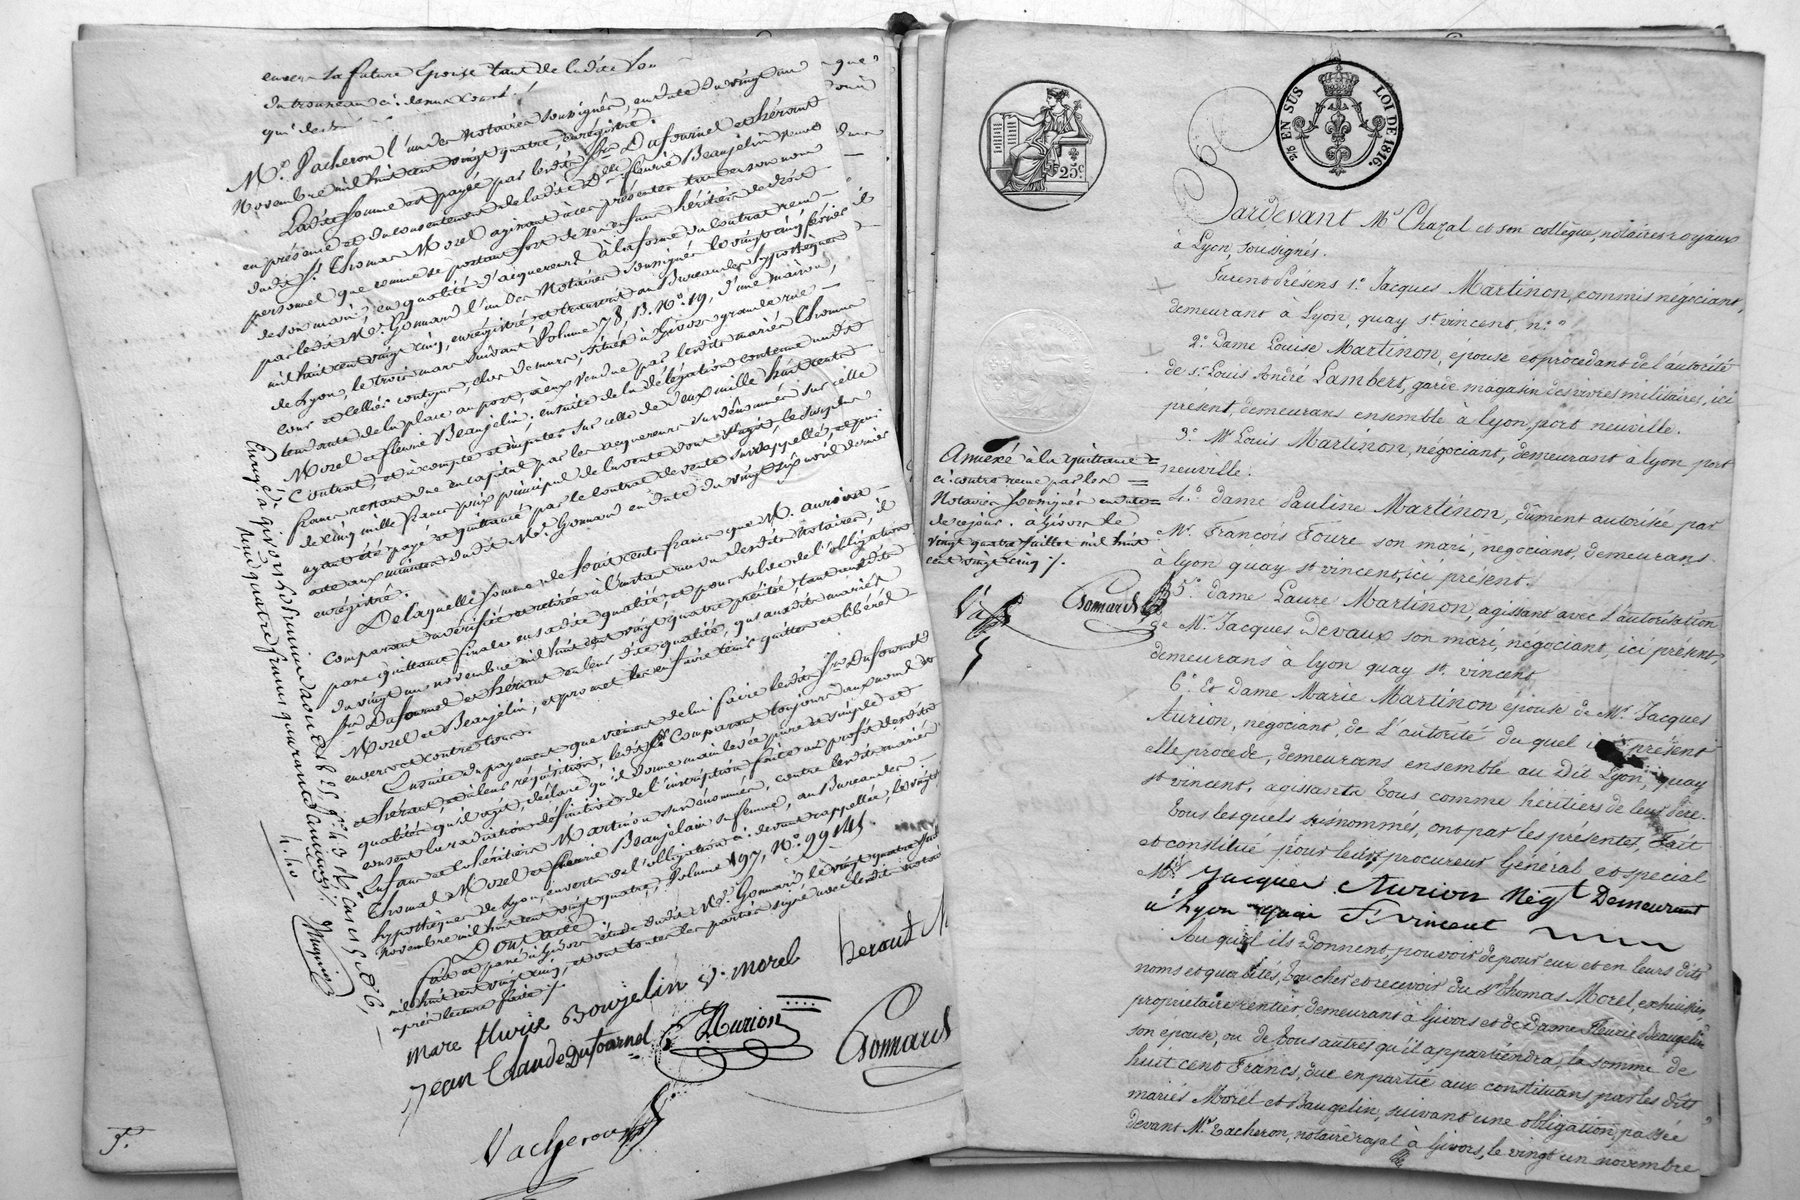 envers la future Epouse tant de ladite
du trousseau ci-dessus
qui des
Me Vacheron l'un des Notaires soussignés, en date du vingt un
Novembre mil huit cent vingt quatre, enregistré.
Ladite somme est payée par lesdits Srs Dufournel et héraut
en présence et du consentement de ladite De fleurie Beaujelin
dudit Sr Thomas Morel agissant à ces présentes tant en son nom
personnel que comme se portant fort de
de son mari, en qualité d'acquéreurs à la forme du contrat reçu
par ledit Me Gomard l'un des Notaires soussignés le vingt cinq février
mil huit cent vingt cinq, enregistré et transcrit au Bureau des hypothèques
de Lyon, le trois mars suivant Volume 78, B. No. 19, d'une maison,
cour et cellier contigus, clos de murs, situés à Givors grande rue
tendante de la place au port, à eux vendue par lesdits mariés Thomas
Morel et fleurie Beaujelin, ensuite de la délégation contenue audit
Contrat, et à compte et à imputer sur celle de Deux mille huit cents
francs restant due en capital par les acquéreurs surdénommés sur celle
de cinq mille francs prix principal de la vente dont s'agit, le surplus
ayant été payé et quittancé par le contrat de vente susrappellé, et par
acte aux minutes dudit Me Gomard en date du vingt six avril dernier
enregistré.
De laquelle somme de huit cents francs que M. aurion
comparant a vérifiée et retirée à l'instant au vu desdits Notaires, il
passe quittance finale en sadite qualité, et pour solde de l'obligation
du vingt un novembre mil huit cent vingt quatre précitée, tant auxdits
Srs Dufournel et héraut en leur dite qualité, qu'auxdits mariés
Morel et Beaujelin, et promet les en faire tenir quittes et libérés
envers et contre tous.
Ensuite du payement que viennent de lui faire lesdits Srs Dufournel
et héraut, et à leur réquisition, ledit Sr Comparant toujours aux noms et
qualités qu'il agit, déclare qu'il donne main levée pure et simple et
consent la radiation définitive de l'inscription faite au profit desdits
Enfans et héritiers Martinon surdénommés, contre lesdits mariés
Thomas Morel et fleurie Beaujelain sa femme, au Bureau des
hypothèques de Lyon, en vertu de l'obligation ci devant rappellée, le vingt
Novembre mil huit cent vingt quatre, Volume 197, No. 99145.
Dont acte
fait et passé à Givors étude dudit Me Gomard le vingt quatre juillet
mil huit cent vingt cinq, et ont toutes les parties signé avec lesdits notaires
après lecture faite /.
marc fleurie Boujelin f. morel heraut
Jean Claude Dufournel Aurion Gomard
Vacheron
Enregé à givors
Reçu quatre francs quarante centimes
4.40
f.
5/6 EN SUS LOI DE 1816.
25c.
Pardevant Me Chazal et son collègue, notaires royaux
à Lyon, soussignés.
Furent Présens 1.° Jacques Martinon, commis négociant,
demeurant à Lyon, quay st vincent, n.°
2.° Dame Louise Martinon, épouse et procédant de l'autorité
de sr Louis André Lambert, garde magasin des vivres militaires, ici
present, demeurans ensemble à Lyon, port neuville.
3.° Mr Louis Martinon, négociant, demeurant à lyon port
neuville.
4.° dame Pauline Martinon, dûment autorisée par
Mr. François Foure son mari, négociant, demeurans
à lyon quay st vincent, ici présent.
5.° dame Laure Martinon, agissant avec l'autorisation
de Mr. Jacques Devaux son mari, négociant, ici présent,
demeurans à lyon quay st. vincent
6.° Et Dame Marie Martinon épouse de Mr. Jacques
Aurion, négociant, de l'autorité du quel ici présent
elle procède, demeurans ensemble au Dit Lyon, quay
st vincent, agissants tous comme héritiers de leur Père.
Tous lesquels susnommés, ont par les présentes, Fait
et constitué pour leur procureur Général et special
Mr. Jacques Aurion Négt Demeurant
à Lyon quai St vincent
Au quel ils donnent, pouvoir de pour eux et en leurs dits
noms et qualités, toucher et recevoir du sr thomas Morel, exhuissier,
propriétaire rentier, demeurant à Givors et de Dame Fleurie Beaugelin
son épouse, ou de tous autres qu'il appartiendra, la somme de
huit cent Francs, due en partie aux constituans par les dits
mariés Morel et Baugelin, suivant une obligation passée
devant Me. Vacheron, notaire royal à Givors, le vingt un novembre
Annexé à la quittance
ci contre reçue par les
Notaires soussignés en date
de ce jour. à Givors le
vingt quatre Juillet mil huit
cent vingt cinq /.
Gomard